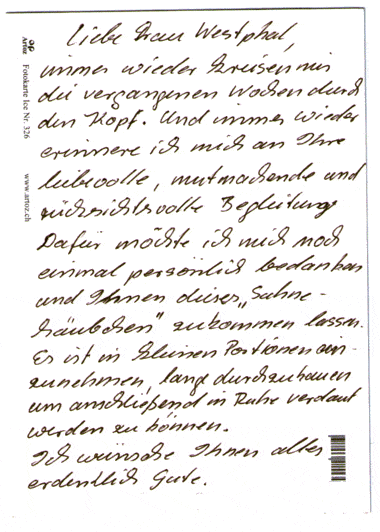 Liebe Frau Westphal,
immer wieder kreisen mir
die vergangenen Wochen durch
den Kopf. Und immer wieder
erinnere ich mich an Ihre
liebevolle, mutmachende und
rücksichtsvolle Begleitung
Dafür möchte ich mich noch
einmal persönlich bedanken
und Ihnen dieses „Sahne-
häubchen" zukommen lassen.
Es ist in kleinen Portionen ein-
zunehmen, lange durchzukauen
um anschließend in Ruhe verdaut
werden zu können.
Ich wünsche Ihnen alles
erdenklich Gute.
Artoz Fotokarte Ice Nr. 326 www.artoz.ch